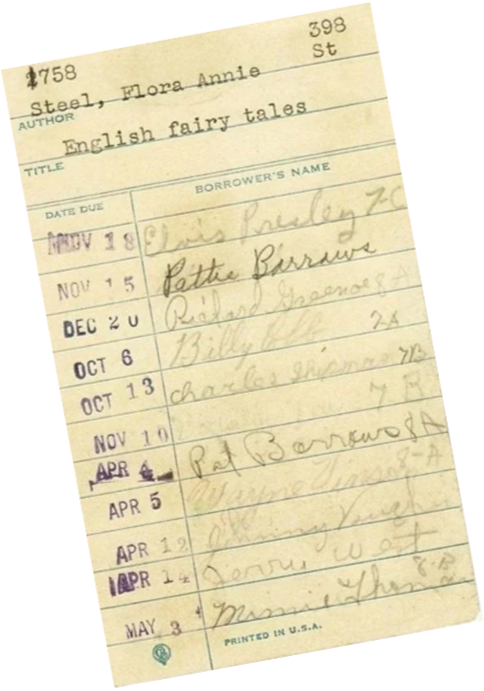 2758 398
Steel, Flora Annie St
AUTHOR
English fairy tales
TITLE
DATE DUE BORROWER'S NAME
NOV 18 Elvis Presley 7C
NOV 15 Pattie Barrows
DEC 20 Richard 8A
OCT 6 Billy 7A
OCT 13 Charles 7B
NOV 10 7 B
APR 4 Pat Barrows 8A
APR 5 Wayne 8-A
APR 12 Johnny
APR 14 Jerry West
MAY 3 Minnie 8-B
PRINTED IN U.S.A.